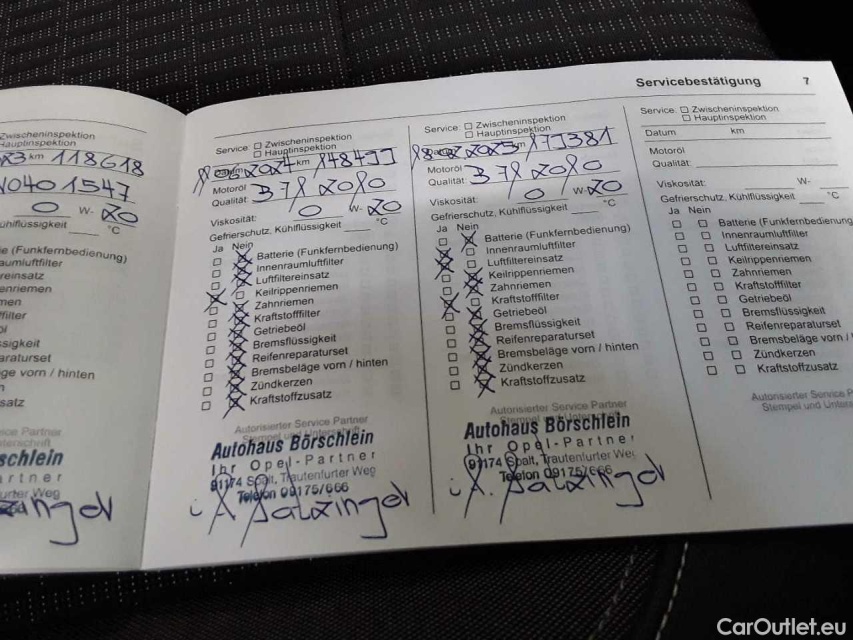 Servicebestätigung 7
Zwischeninspektion
Hauptinspektion
km 118618
0401547
0 W- 20
Kühlflüssigkeit °C
(Funkfernbedienung)
hinten
Zündkerzen
Service Partner
schlein
Partner
Service: Zwischeninspektion
Hauptinspektion
Datum 2024 km 148499
Motoröl
Qualität B 7% 2080
Viskosität: 0 W- 20
Gefrierschutz, Kühlflüssigkeit °C
Ja Nein
Batterie (Funkfernbedienung)
Innenraumluftfilter
Luftfiltereinsatz
Keilrippenriemen
Zahnriemen
Kraftstofffilter
Getriebeöl
Bremsflüssigkeit
Reifenreparaturset
Bremsbeläge vorn / hinten
Zündkerzen
Kraftstoffzusatz
Autorisierter Service Partner
Stempel und Unterschrift
Autohaus Börschlein
Ihr Opel-Partner
91174 Spalt, Trautenfurter Weg
Telefon 09175/666
Service: Zwischeninspektion
Hauptinspektion
Datum 2025 km 179381
Motoröl
Qualität: 2080
Viskosität: 0 W- 20
Gefrierschutz, Kühlflüssigkeit °C
Ja Nein
Batterie (Funkfernbedienung)
Innenraumluftfilter
Luftfiltereinsatz
Keilrippenriemen
Zahnriemen
Kraftstofffilter
Getriebeöl
Bremsflüssigkeit
Reifenreparaturset
Bremsbeläge vorn / hinten
Zündkerzen
Kraftstoffzusatz
Autorisierter Service Partner
Autohaus Börschlein
Ihr Opel-Partner
91174 Spalt, Trautenfurter Weg
Telefon 09175/666
Service: Zwischeninspektion
Hauptinspektion
Datum km
Motoröl
Qualität:
Viskosität: W-
Gefrierschutz, Kühlflüssigkeit °C
Ja Nein
Batterie (Funkfernbedienung
Innenraumluftfilter
Luftfiltereinsatz
Keilrippenriemen
Zahnriemen
Kraftstofffilter
Getriebeöl
Bremsflüssigkeit
Reifenreparaturset
Bremsbeläge vorn /
Zündkerzen
Kraftstoffzusatz
Autorisierter Service P
Stempel und Unters
CarOutlet.eu